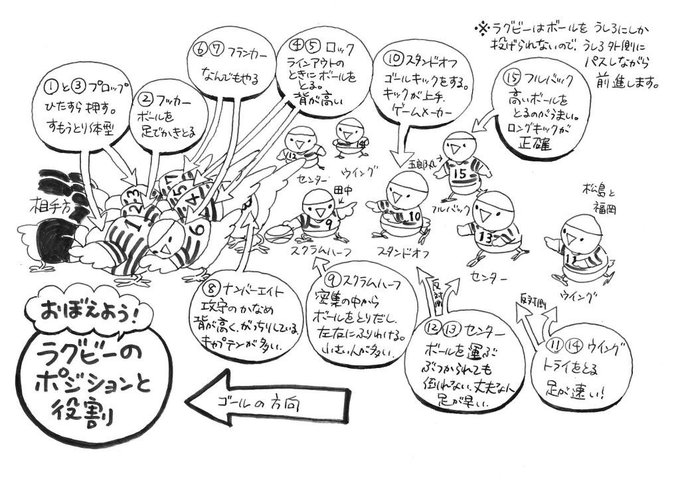 ※ラグビーはボールをうしろにしか
投げられないので、うしろ外側に
パスしながら
前進します。
①と③プロップ
ひたすら押す。
すもうとり体型
②フッカー
ボールを
足でかきとる
⑥⑦フランカー
なんでもやる
④⑤ロック
ラインアウトの
ときにボールを
とる。
背が高い
⑩スタンドオフ
ゴールキックをする。
キックが上手。
ゲームメーカー
⑮フルバック
高いボールを
とるのがうまい。
ロングキックが
正確
相手方
1
2
3
4
5
7
6
8
12
センター
ウイング
田中
9
スクラムハーフ
10
スタンドオフ
五郎丸
15
フルバック
13
センター
松島と
福岡
11
ウイング
⑧ナンバーエイト
攻守のかなめ
背が高く、がっちりしている
キャプテンが多い。
⑨スクラムハーフ
密集の中から
ボールをとりだし、
左右にふりわける。
小さい人が多い。
反対側
⑫⑬センター
ボールを運ぶ
ぶつかられても
倒れない丈夫な人
足が早い。
反対側
⑪⑭ウイング
トライをとる
足が速い!
おぼえよう!
ラグビーの
ポジションと
役割
ゴールの方向